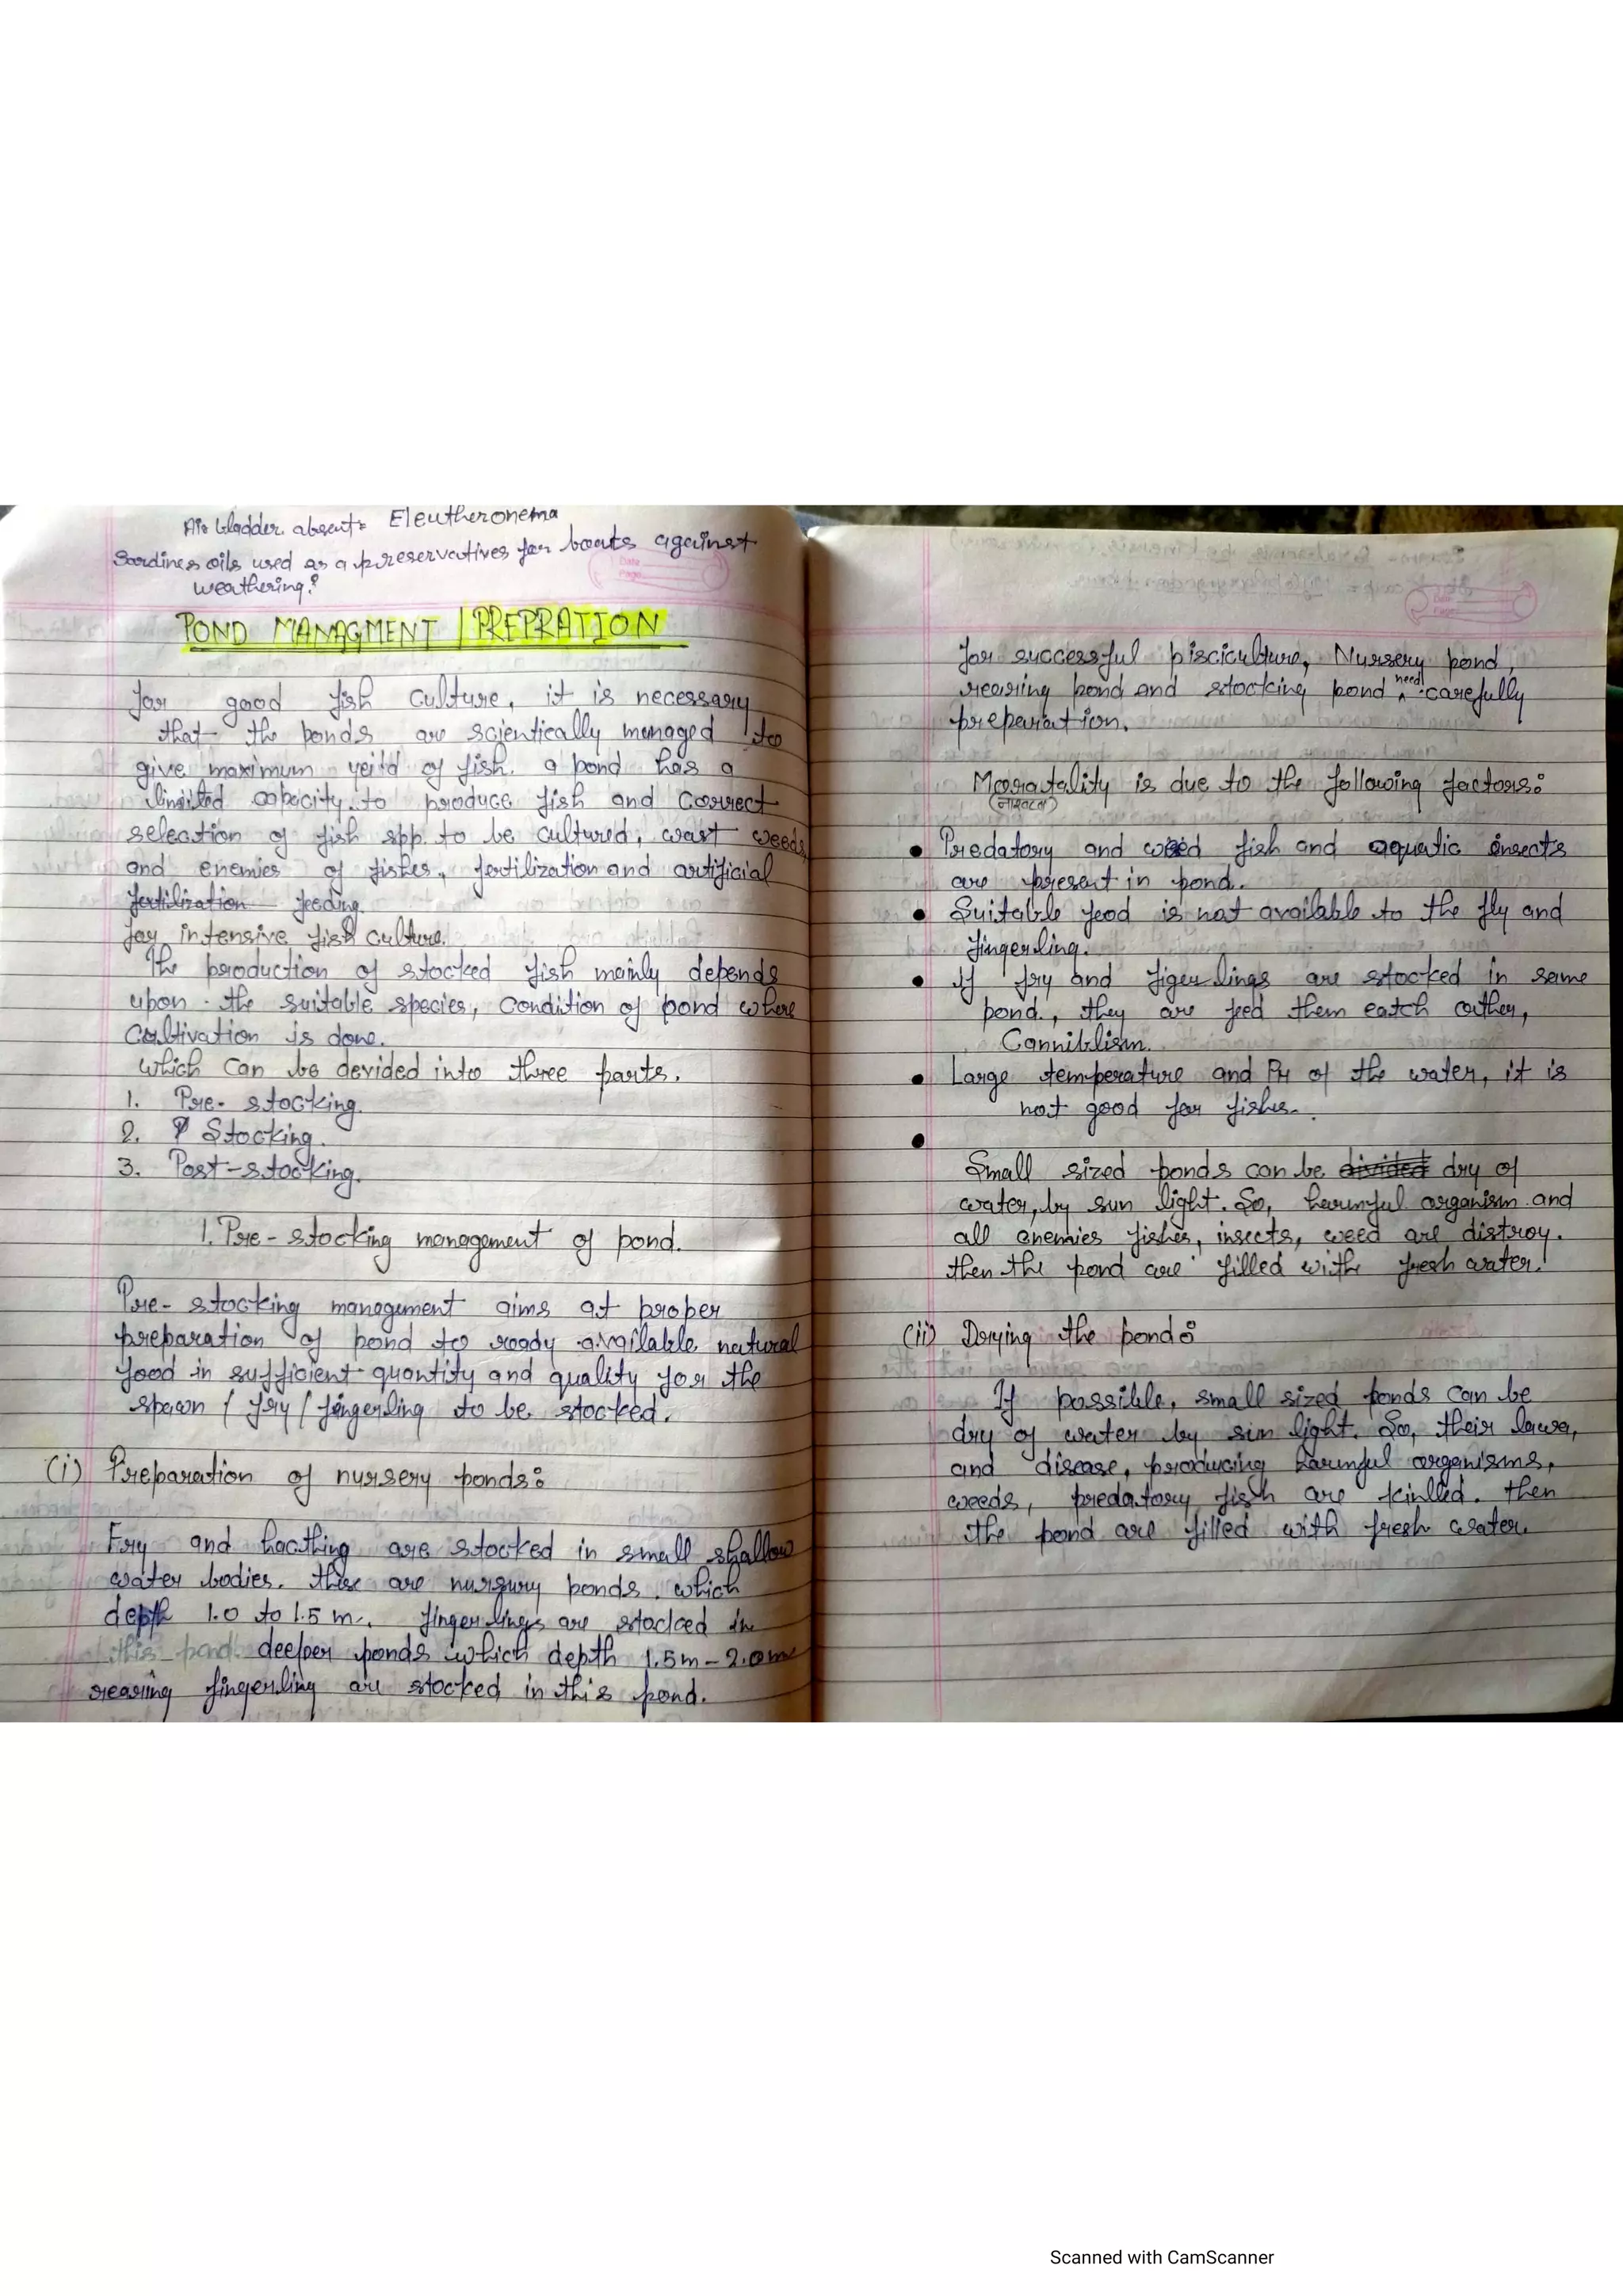 Air bladder absent = Eleutheronema
Sardines oils used as a preservatives for boats against
weathering?
POND MANAGMENT / PREPRATION
for good fish culture, it is necessary
that the ponds are scientically managed to
give maximum yeild of fish. a pond has a
limited capacity to produce fish and correct
selection of fish spp. to be cultured, wast weeds
and enemies of fishes, fertilization and artificial
fertilization feeding
foy intensive fish culture.
The production of stocked fish mainly depends
upon the suitable species, condition of pond where
Cultivation is done.
which can be devided into three parts.
1. Pre-stocking.
2. Stocking.
3. Post-stocking.
1. Pre-stocking management of pond.
Pre-stocking management aims at proper
preparation of pond to ready available natural
food in sufficient quantity and quality for the
spawn / fry / fingerling to be stocked.
(i) Preparation of nursery ponds:
Fry and hacthing are stocked in small shallow
water bodies. these are nursury ponds. which
depth 1.0 to 1.5 m. fingerlings are stocked in
this pond. deeper ponds which depth 1.5m - 2.0m
rearing fingerling are stocked in this pond.
for successful pisciculture, Nursery pond,
need
rearing pond and stocking pond carefully
preparation.
Moratality is due to the following factors:
Predatory and weed fish and aquatic insects
are present in pond.
Suitable food is not available to the fly and
fingerling.
If fry and figerlings are stocked in same
pond., they are feed them eatch outher,
Canniblism.
Large temperature and PH of the water, it is
not good for fishes.
Small sized ponds can be divided dry of
water, by sun light. So, harmful organism and
all enemies fishes, insects, weed are distroy.
then the pond are filled with fresh water.
(ii) Drying the pond:
If possible, small sized ponds can be
dry of water by sun light. So, their lawa,
and disease, producing harmful organisms,
weeds, predatory fish are kinlled. then
the pond are filled with fresh water.
Scanned with CamScanner